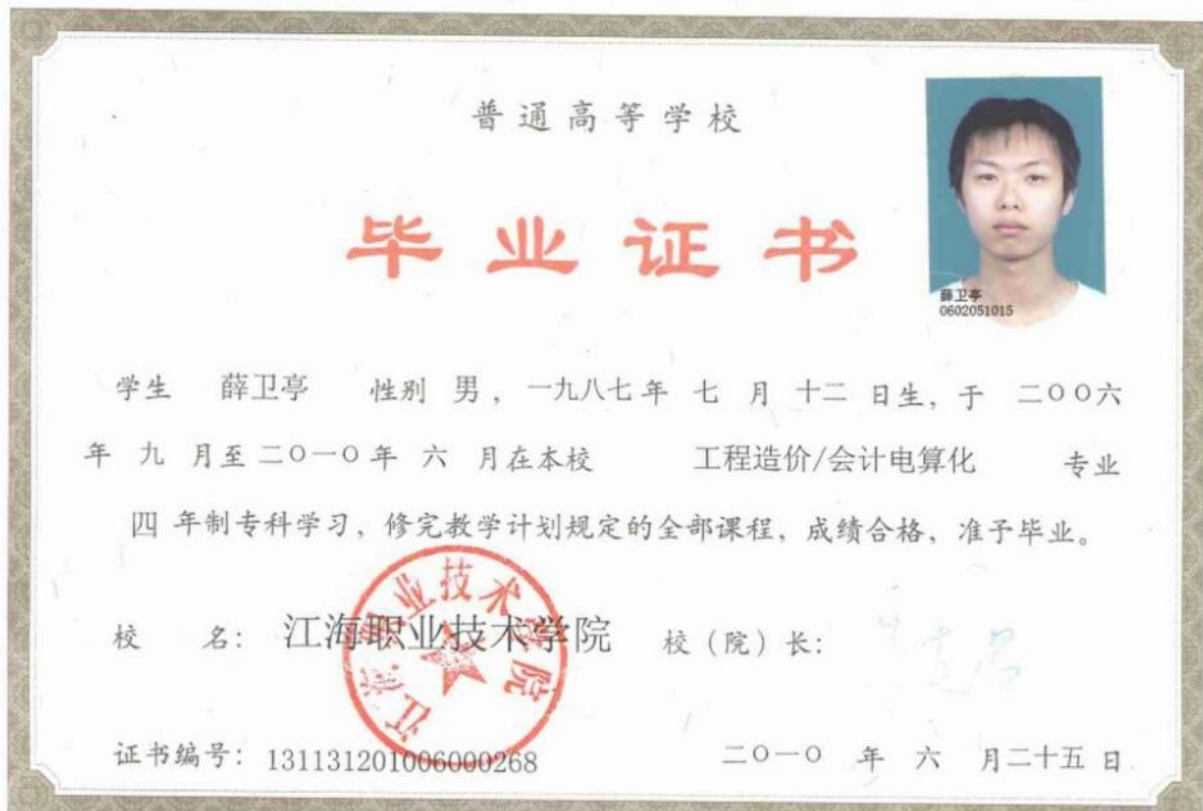 普通高等学校
毕业证书
薛卫亭
0602051015
学生 薛卫亭 性别 男，一九八七年 七 月 十二 日生，于 二〇〇六
年 九 月至二〇一〇年 六 月在本校 工程造价/会计电算化 专业
四 年制专科学习，修完教学计划规定的全部课程，成绩合格，准予毕业。
江海职业技术学院
校 名：江海职业技术学院 校（院）长：
证书编号：131131201006000268 二〇一〇 年 六 月二十五 日